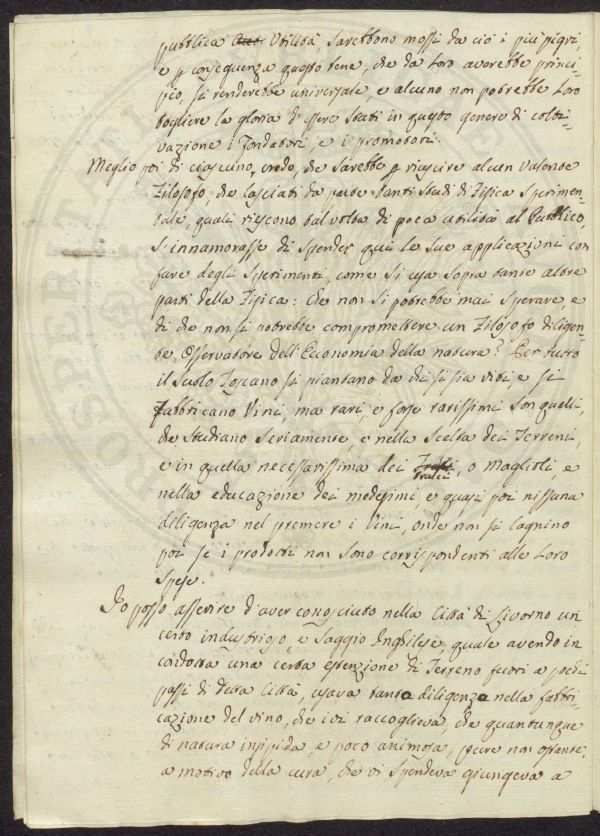 pubblica Utilità, sarebbono mossi da ciò i più pigri,
e p conseguenza questo bene, che da loro averebbe princi-
pio, si renderebbe universale, e alcuno non potrebbe loro
togliere la gloria d'essere stati in questo genere di colti-
vazione i Fondatori, e i promotori.
Meglio poi di ciascuno, credo, che sarebbe p riescire alcun valente
Filosofo, che lasciati da parte tanti studi di Fisica sperimen-
tale, quali riescono tal volta di poca utilità al Pubblico,
s'innamorasse di spender qui le sue applicazioni con
fare degli sperimenti, come si usa sopra tante altre
parti della Fisica: Che non si potrebbe mai sperare e
di che non si potrebbe compromettere un Filosofo diligen-
te Osservatore dell'Economia della natura? Per tutto
il suolo Toscano si piantano da chi si sia viti e si
Fabbricano Vini, ma rari, e forse rarissimi son quelli,
che studiano seriamente, e nella scelta dei Terreni,
e in quella necessarissima dei Tralci, o Maglioli, e
nella educazione dei medesimi, e quasi poi nissuna
diligenza nel premere i Vini, onde non si lagnino
poi se i prodotti non sono corrispondenti alle loro
spese.
Io posso asserire d'aver conosciuto nella Città di Livorno un
certo industrioso, e saggio Inghilese, quale avendo in
condotta una certa estenzione di Terreno fuori a pochi
passi di detta Città, usava tanta diligenza nella fabbri-
cazione del vino, che ivi raccoglieva, che quantunque
di natura insipida, e poco animosa, pure non ostante,
a motivo della cura, che vi spendeva giungeva a